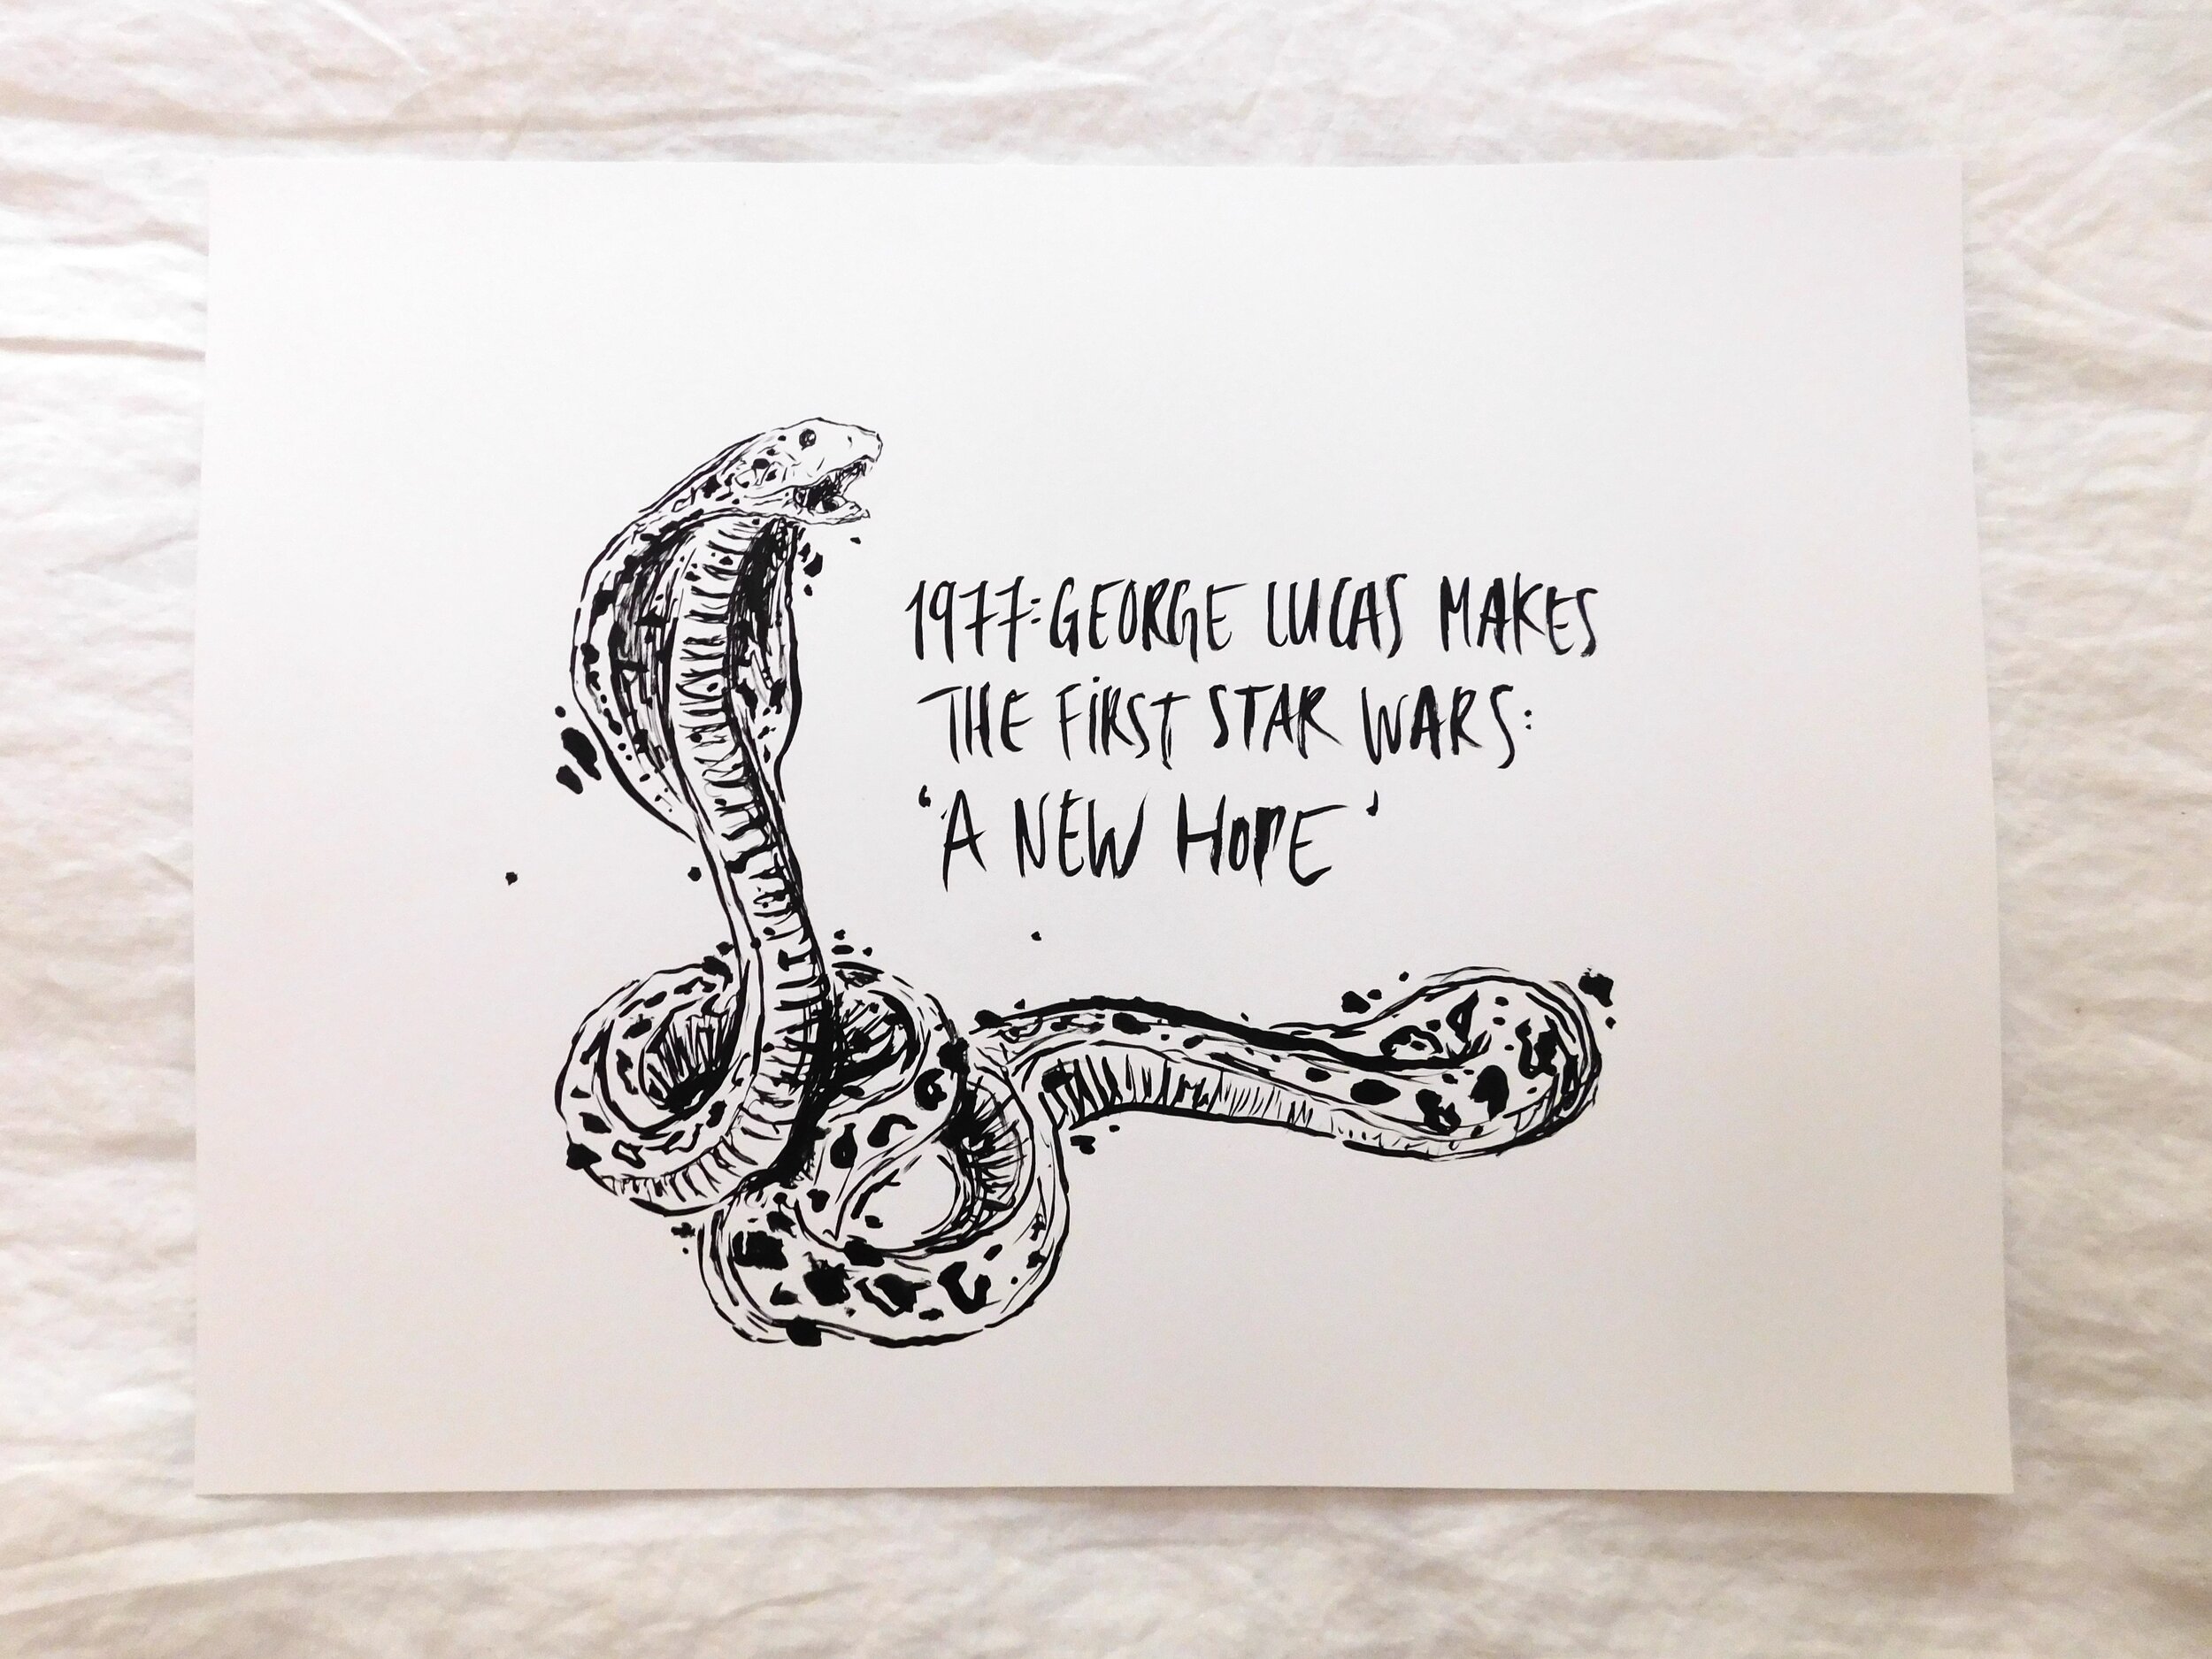 1977: GEORGE LUCAS MAKES
THE FIRST STAR WARS:
'A NEW HOPE'